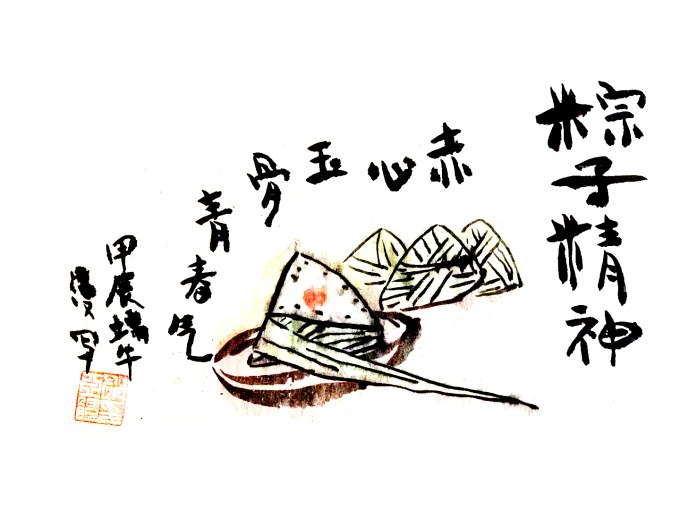 粽子精神
赤心玉骨
青春气
甲辰端午